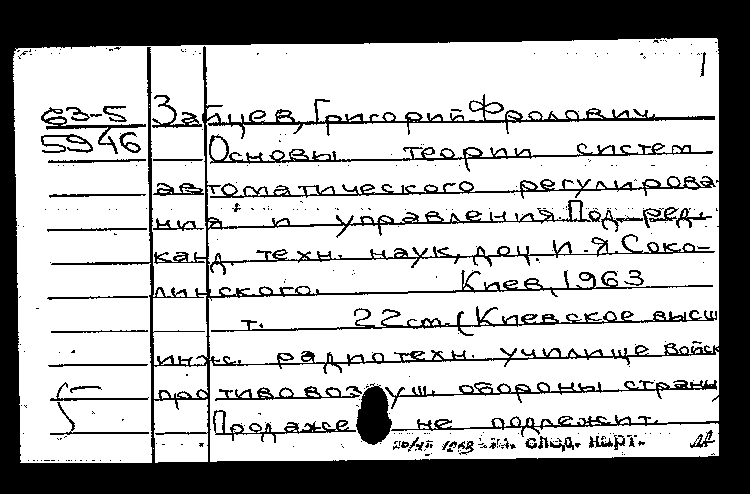 1
63-5 Зайцев, Григорий Фролович.
5946 Основы теории систем
автоматического регулирова-
ния и управления. Под ред.
канд. техн. наук, доц. И.Я. Соко-
линского. Киев, 1963
т. 22 см. (Киевское высш
инж. радиотехн. училище Войск
противовоздуш. обороны страны)
Продаже не подлежит.
след. карт.